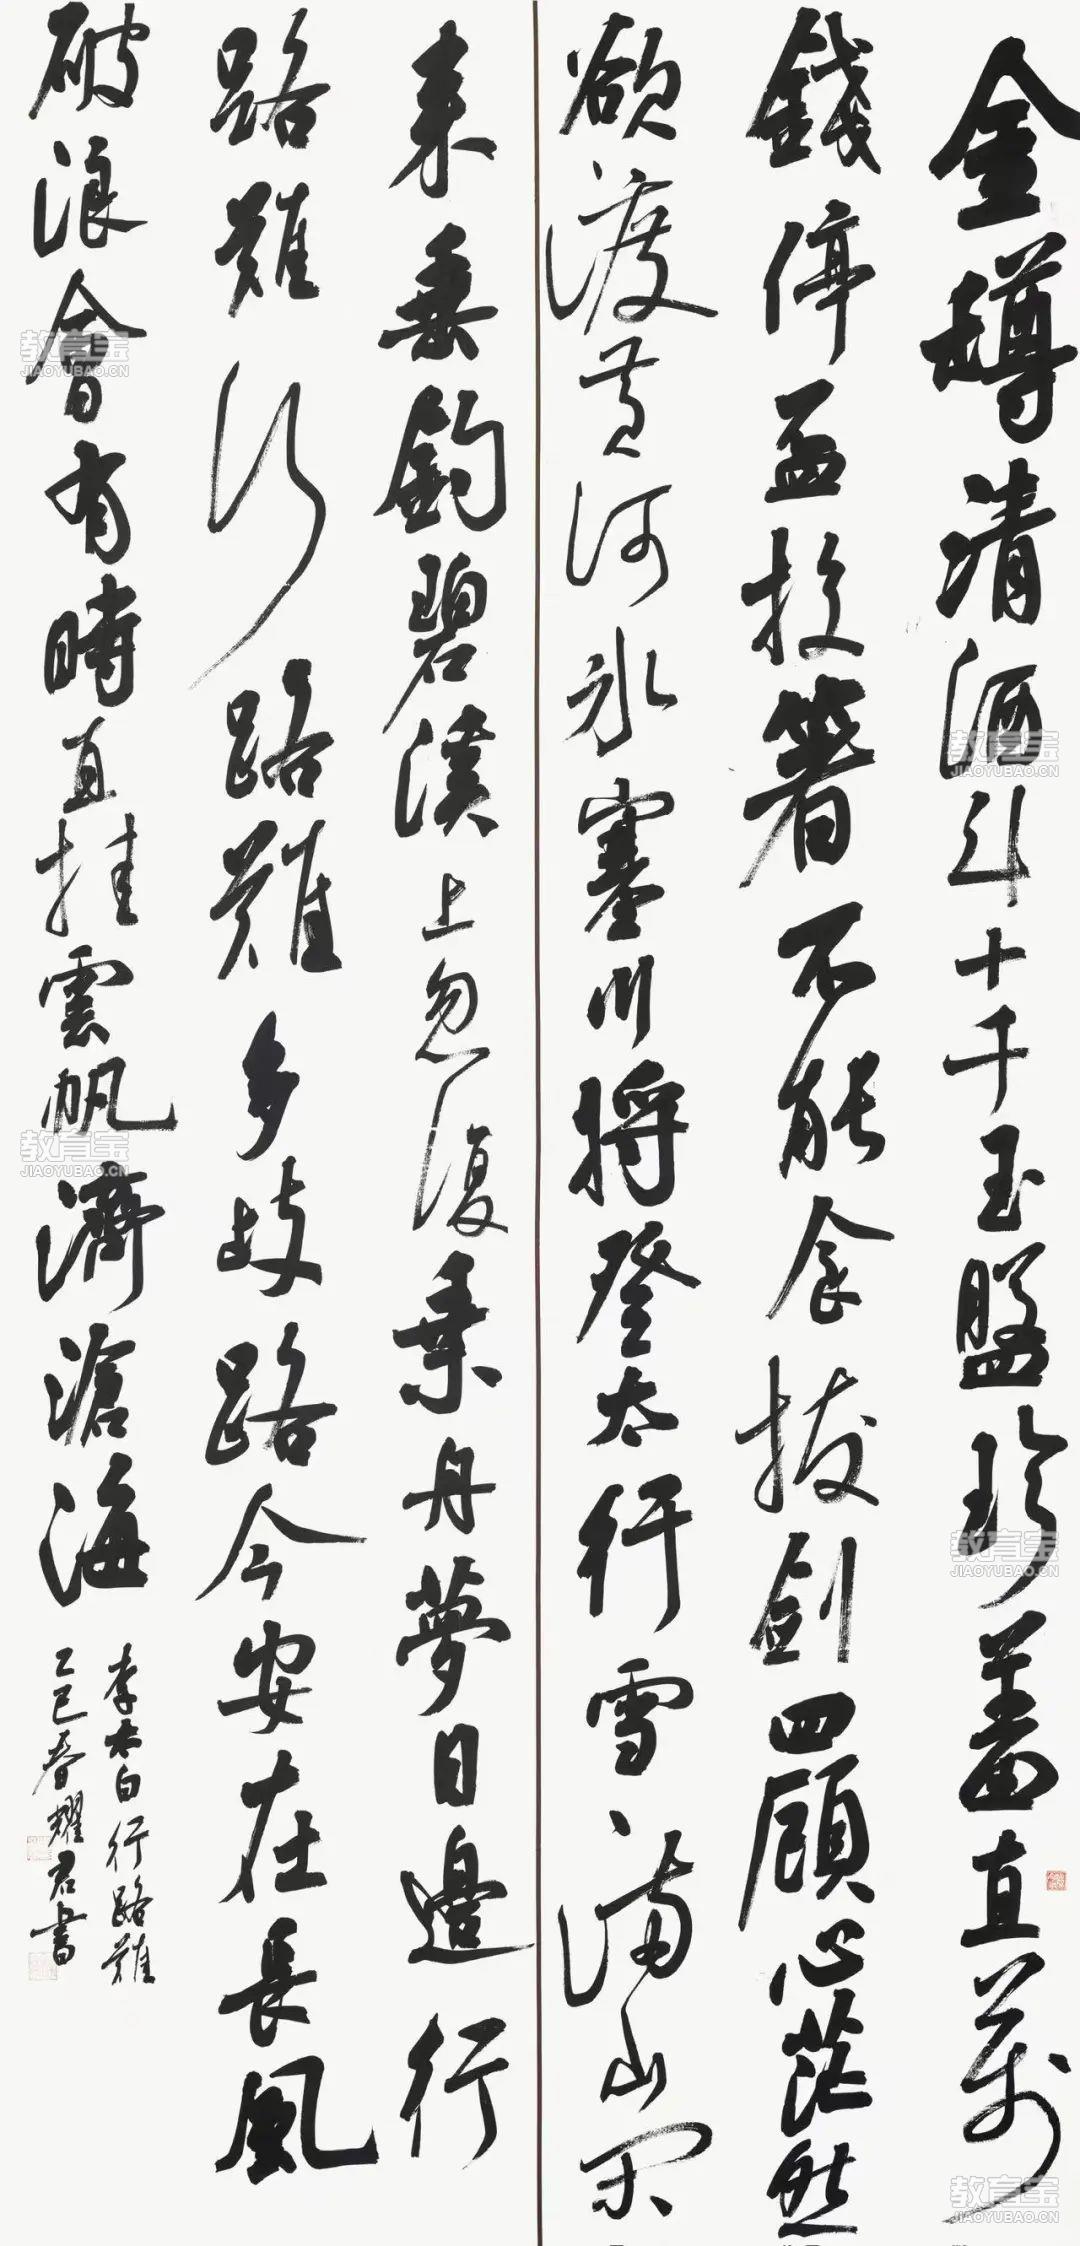 金樽清酒斗十千玉盤珍羞直萬
錢停盃投箸不能食拔劍四顧心茫然
欲渡黃河冰塞川將登太行雪滿山閑
来垂釣碧溪上忽復乘舟夢日邊行
路難行路難多歧路今安在長風
破浪會有時直挂雲帆濟滄海
李太白行路難
乙巳春耀君書
教育宝
JIAOYUBAO.CN
教育宝
JIAOYUBAO.CN
教育宝
JIAOYUBAO.CN
教育宝
JIAOYUBAO.CN
教育宝
JIAOYUBAO.CN